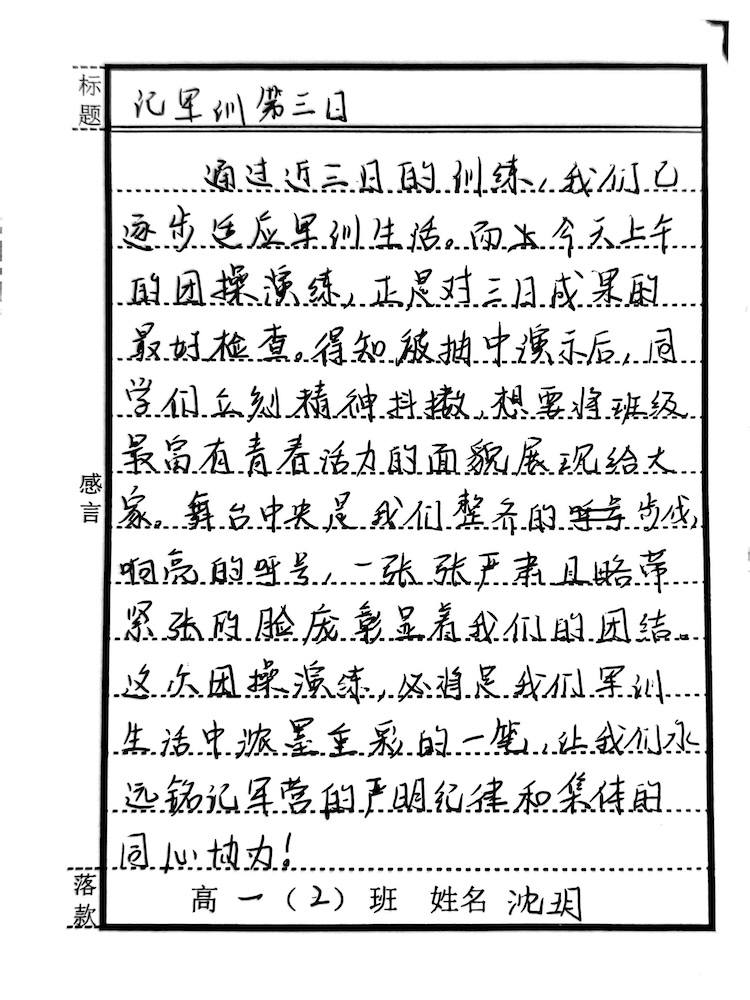 标题
记军训第三日
通过近三日的训练，我们已
逐步适应军训生活。而今天上午
的团操演练，正是对三日成果的
最好检查。得知被抽中演示后，同
学们立刻精神抖擞，想要将班级
最富有青春活力的面貌展现给大
家。舞台中央是我们整齐的步伐，
响亮的呼号，一张张严肃且略带
紧张的脸庞彰显着我们的团结。
这次团操演练，必将是我们军训
生活中浓墨重彩的一笔，让我们永
远铭记军营的严明纪律和集体的
同心协力！
感言
落款
高一（2）班 姓名 沈玥